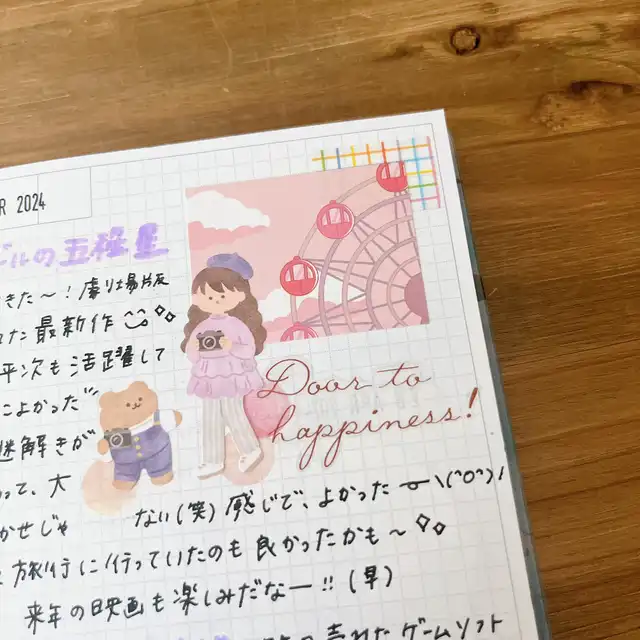 R 2024
ルの五稜星
きた〜！劇場版
た最新作
平次も活躍して
によかった
謎解きが
って、大
Door to
happiness!
かせじゃ ない(笑)感じで、よかった \(^o^)/
旅行に行っていたのも良かったかも〜
来年の映画も楽しみだなー!!(早)
売れたゲームソフト